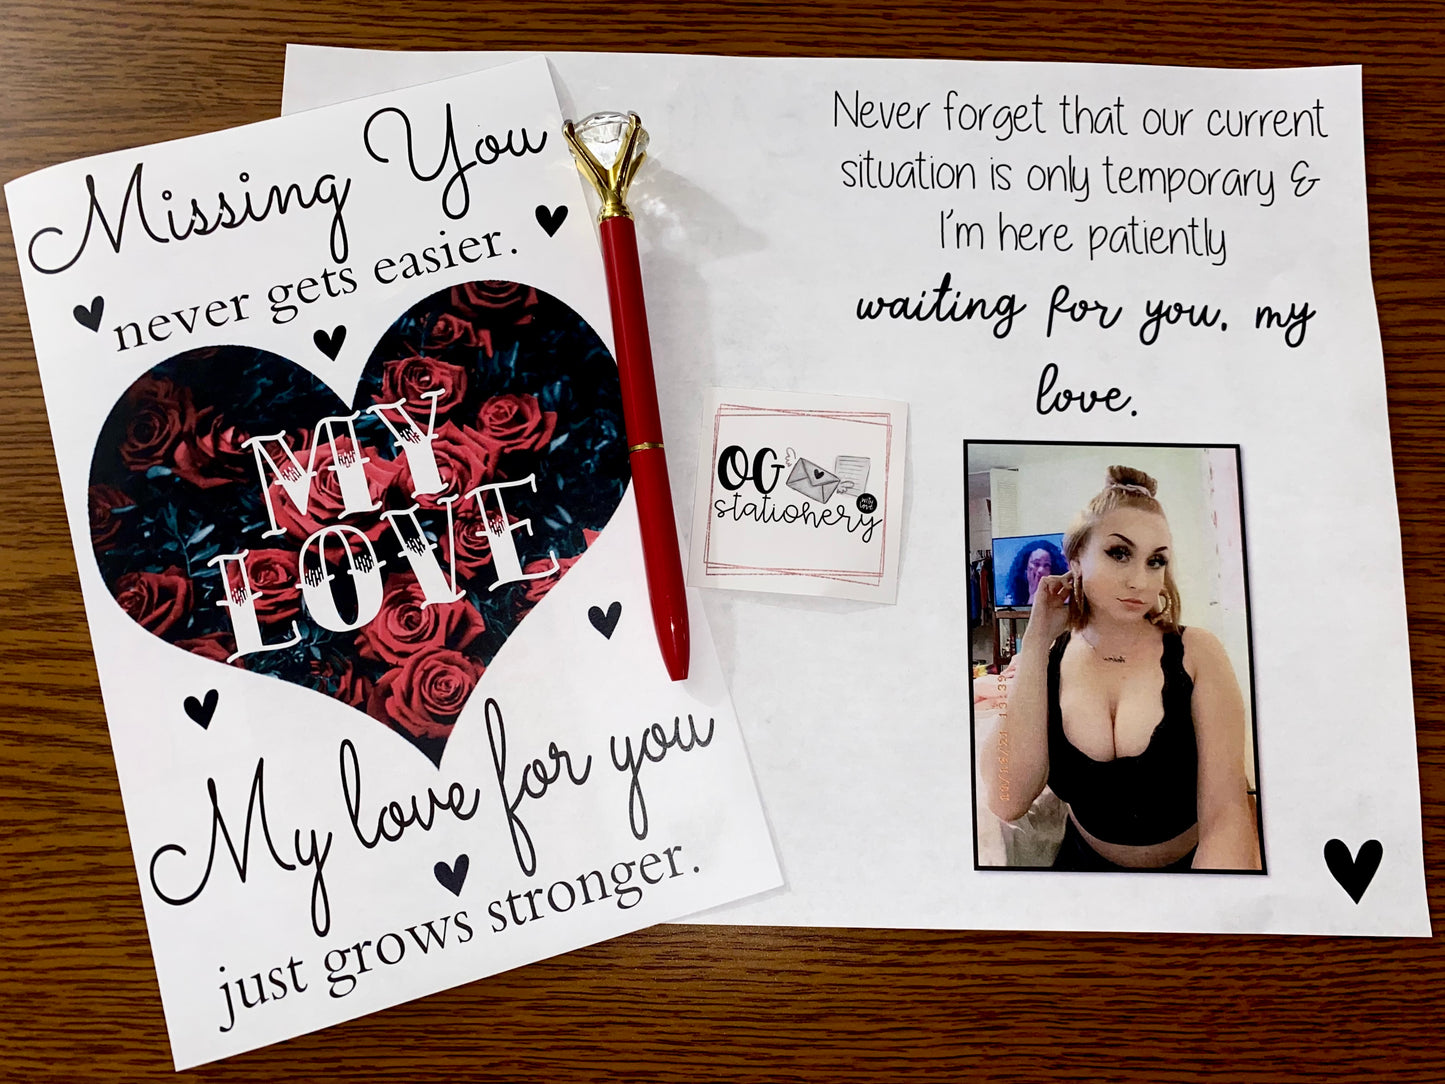 Missing You
never gets easier.
MY
LOVE
My love for you
just grows stronger.
OG
stationery
with
love
Never forget that our current
situation is only temporary &
I'm here patiently
waiting for you, my
love.